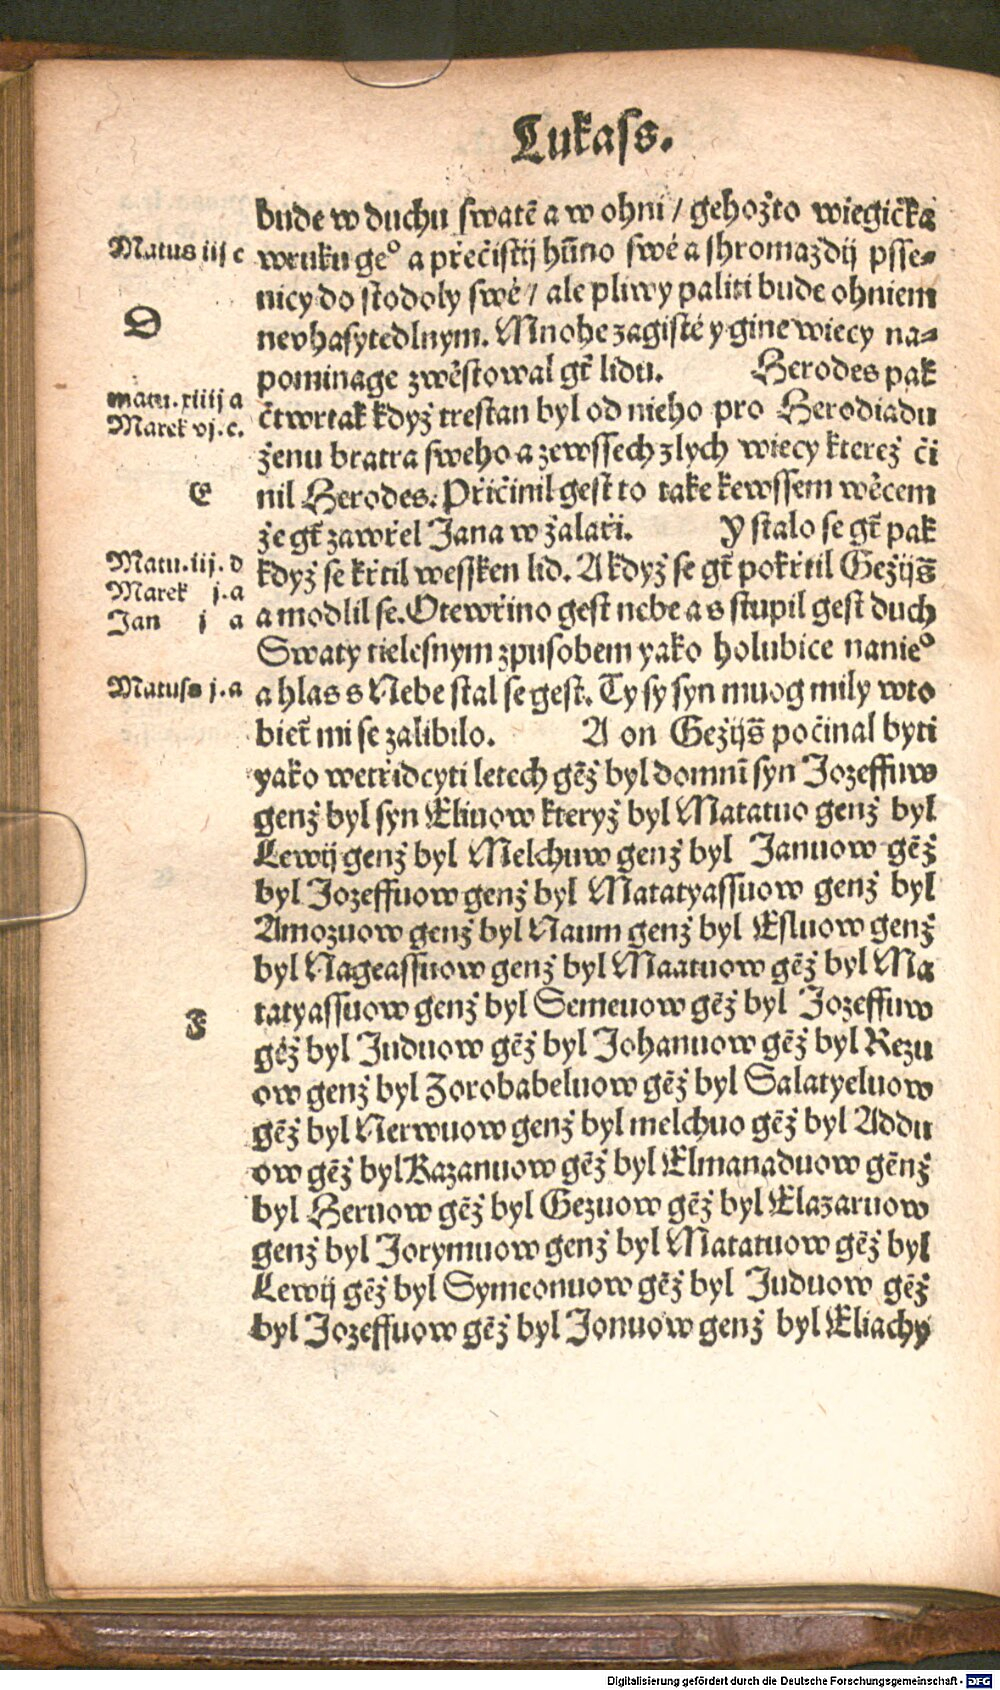 Lukass.
bude w duchu swatē a w ohni / gehožto wiegička
Matus iij c
wruku geº a přečistij hūno swé a shromaždij psse=
nicy do stodoly swé / ale pliwy paliti bude ohniem
D
nevhasytedlnym. Mnohe zagisté y gine wiecy na=
pominage zwěstowal gt̄ lidu. Herodes pak
matu. xiiij a
čtwrtak když trestan byl od nieho pro Herodiadu
Marek vj. c.
ženu bratra sweho a zewssech zlych wiecy kterež či
E
nil Herodes. Přičinil gest to take kewssem wěcem
že gt̄ zawřel Jana w žalaři. Y stalo se gt̄ pak
Matu. iij. d
když se křtil wessken lid. A když se gt̄ pokřtil Gežijs̄
Marek j. a
Jan j a
a modlil se. Otewřino gest nebe a s stupil gest duch
Swaty tielesnym zpusobem yako holubice nanieº
Matuss j. a
a hlas s Nebe stal se gest. Ty sy syn muog mily wto
biet̄ mi se zalibilo. A on Gežijs̄ počinal byti
yako wetřidcyti letech gēž byl domnī syn Jozeffuw
genž byl syn Eliuow kteryž byl Matatuo genž byl
Lewij genž byl Melchuw genž byl Januow gēž
byl Jozeffuow genž byl Matatyassuow genž byl
Amozuow genž byl Naum genž byl Esluow genž
byl Nageassuow genž byl Maatuow gēž byl Ma
tatyassuow genž byl Semeuow gēž byl Jozeffuw
F
gēž byl Juduow gēž byl Johanuow gēž byl Rezu
ow genž byl Zorobabeluow gēž byl Salatyeluow
gēž byl Nerwuow genž byl melchuo gēž byl Addu
ow gēž byl Kazanuow gēž byl Elmanaduow gēnž
byl Heruow gēž byl Gezuow gēž byl Elazaruow
genž byl Jorymuow genž byl Matatuow gēž byl
Lewij gēž byl Symeonuow gēž byl Juduow gēž
byl Jozeffuow gēž byl Jonuow genž byl Eliachy
Digitalisierung gefördert durch die Deutsche Forschungsgemeinschaft - DFG